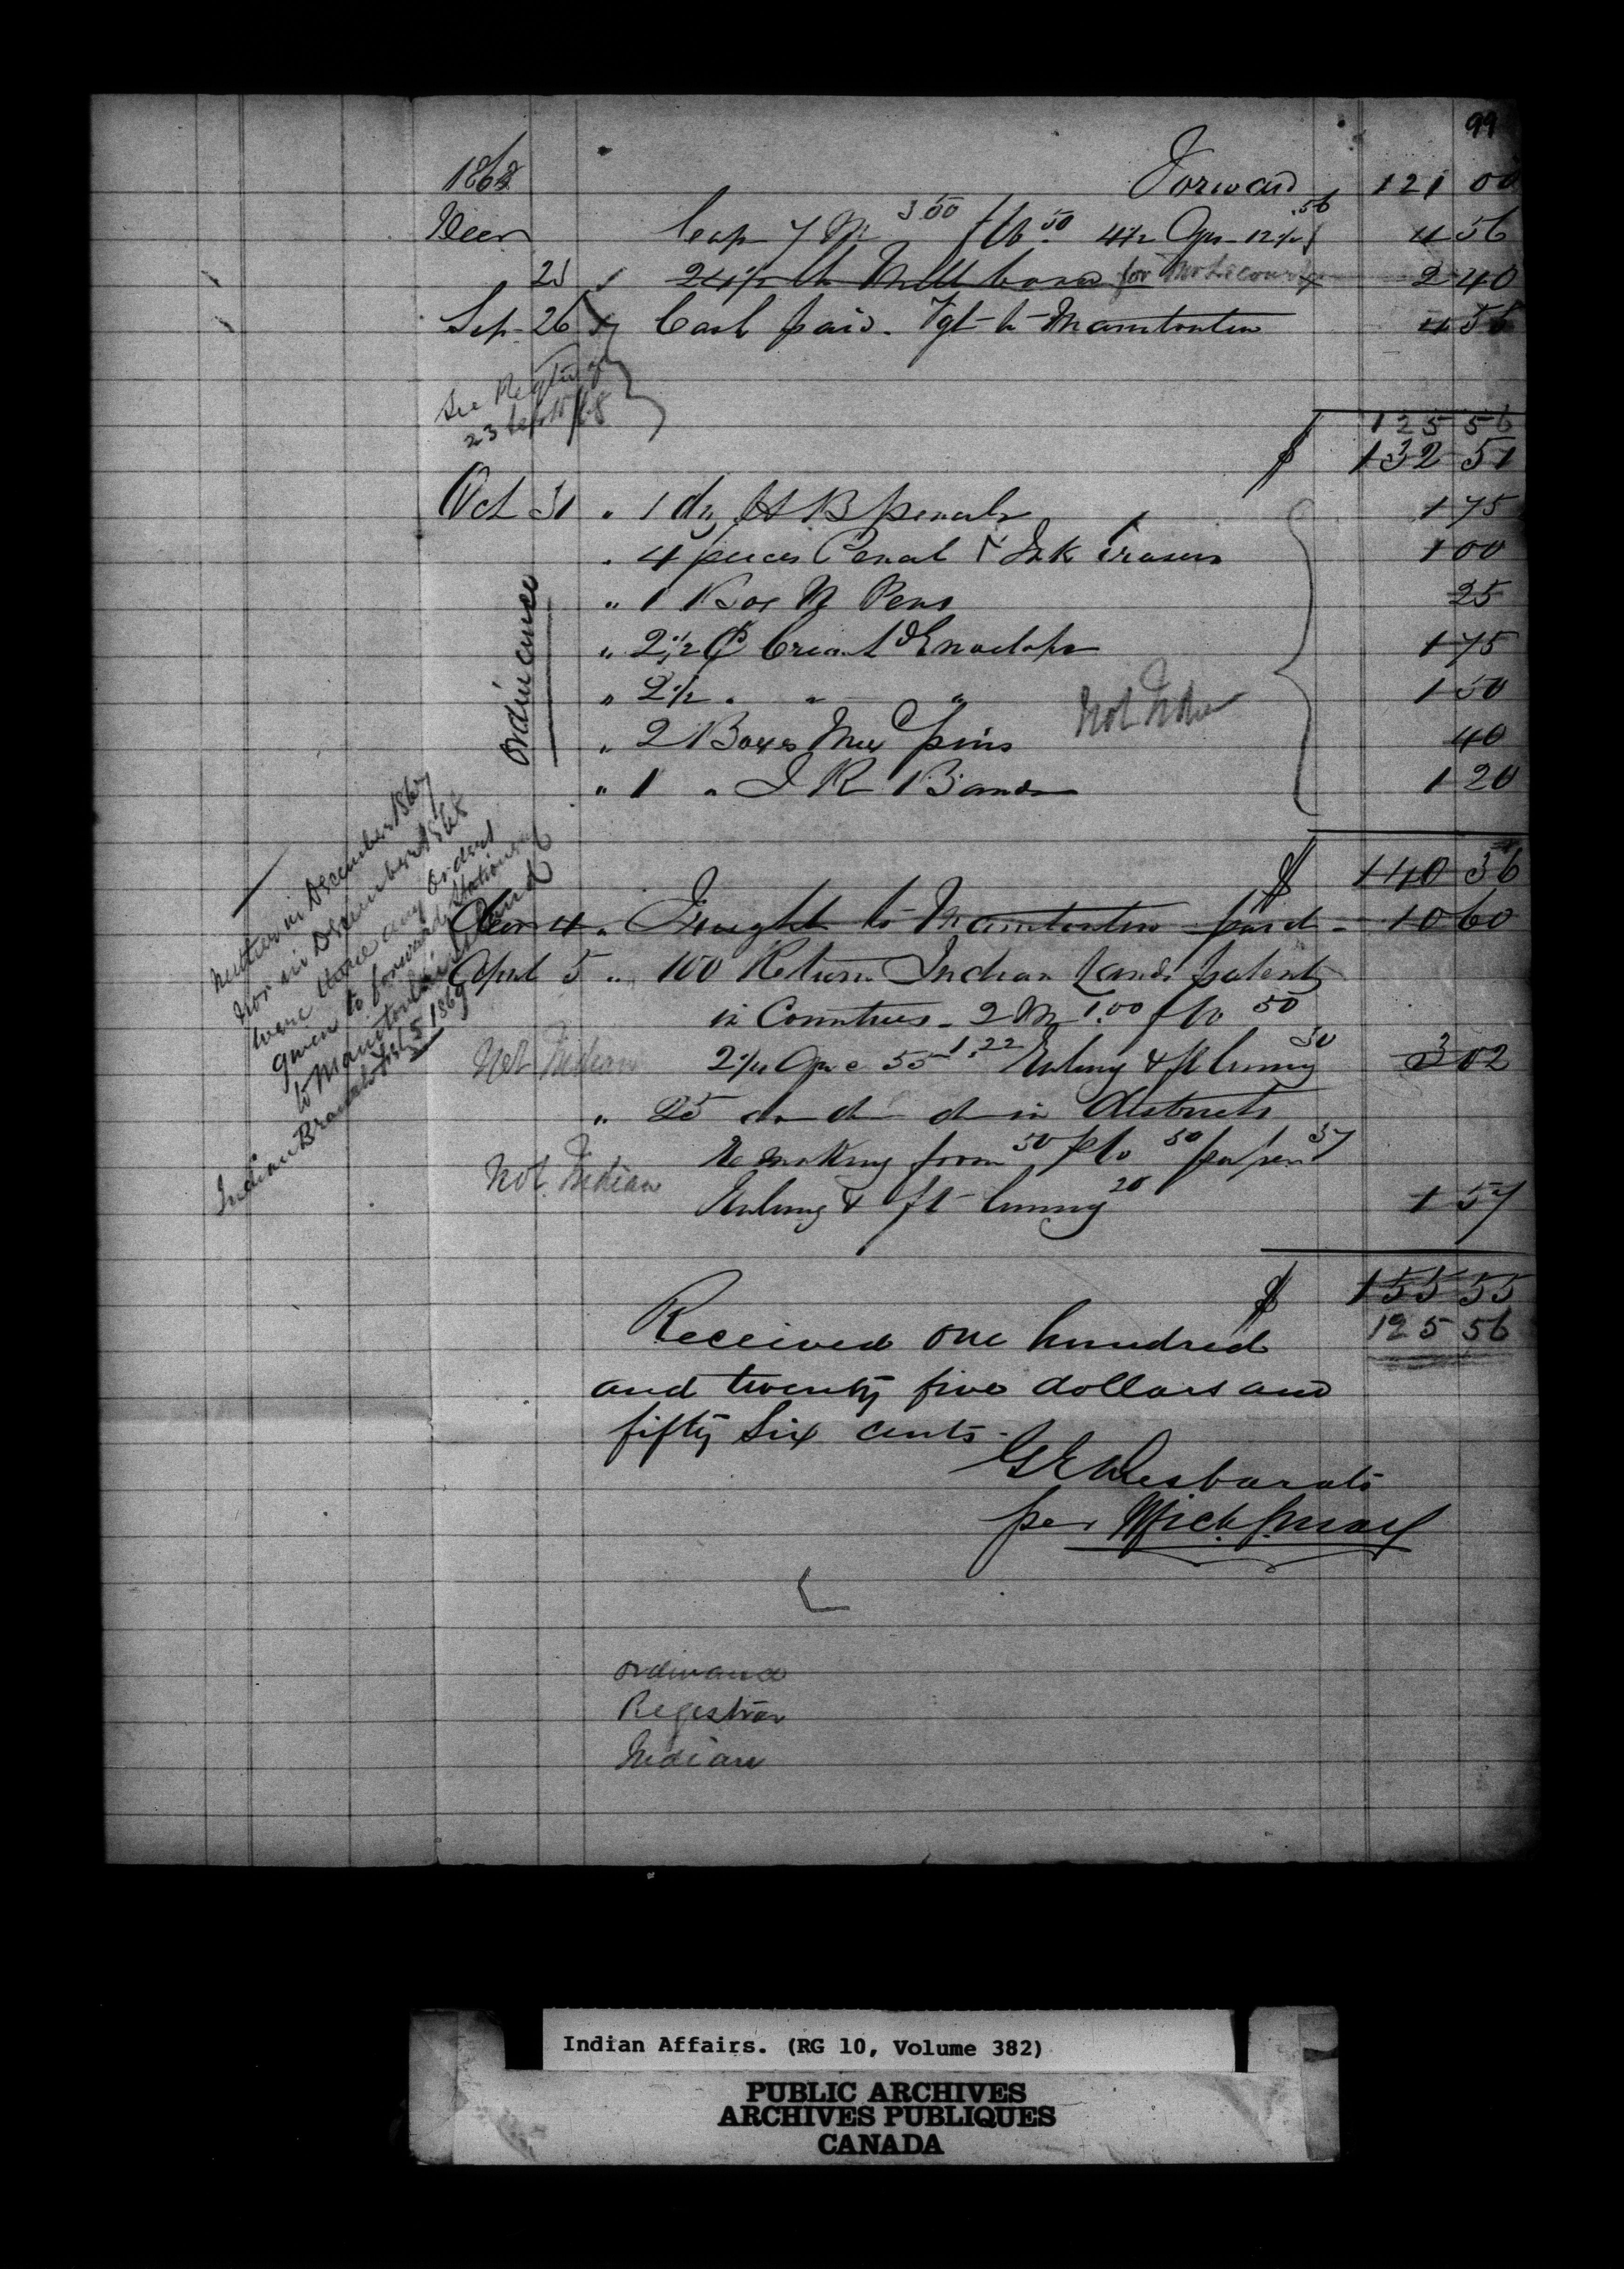 99
1868 Forward 121 00
Decr Cap 7 M 3 50 fl 50 4 1/2 Qrs 12 1/2 .56 4 56
23 " 24 1/2 lb Mill board for 2 40
Sep 26 Cash paid Fgt to Manitoulin 4 55
See Regtry of
23 Sept /68
125 56
$ 132 51
Oct 31 " 1 dz H B pencils 1 75
" 4 pieces Pencil & Ink Erasers 1 00
" 1 Box M Pens 25
" 2 1/2 C Envelope 1 75
" 2 1/2 " " " 1 50
" 2 Boxes Mix Pins 40
" 1 " I R Bands 1 20
Ordinance
Not Indian
$ 140 36
Decr 4 " Freight to Manitoulin paid 10 60
April 5 " 100 Return Indian Lands patents
in Counties - 2 M 1.00 50
Not Indian 2 1/4 Qrs @ 55 1.22 Ruling & ft lining 30 3 02
" 25 do do do in districts
Remaking form 50 50 paper 37
Not Indian
Ruling & ft lining 20 1 57
Neither in December 1867
Nor in December 1868
were there any orders
given to forward Stationery
to Manitoulin Island
Indian Branch 5 1869
$ 155 55
125 56
Received one hundred
and twenty five dollars and
fifty six cents.
G E Desbarats
per Mich.
Ordinance
Registrar
Indian
Indian Affairs. (RG 10, Volume 382)
PUBLIC ARCHIVES
ARCHIVES PUBLIQUES
CANADA